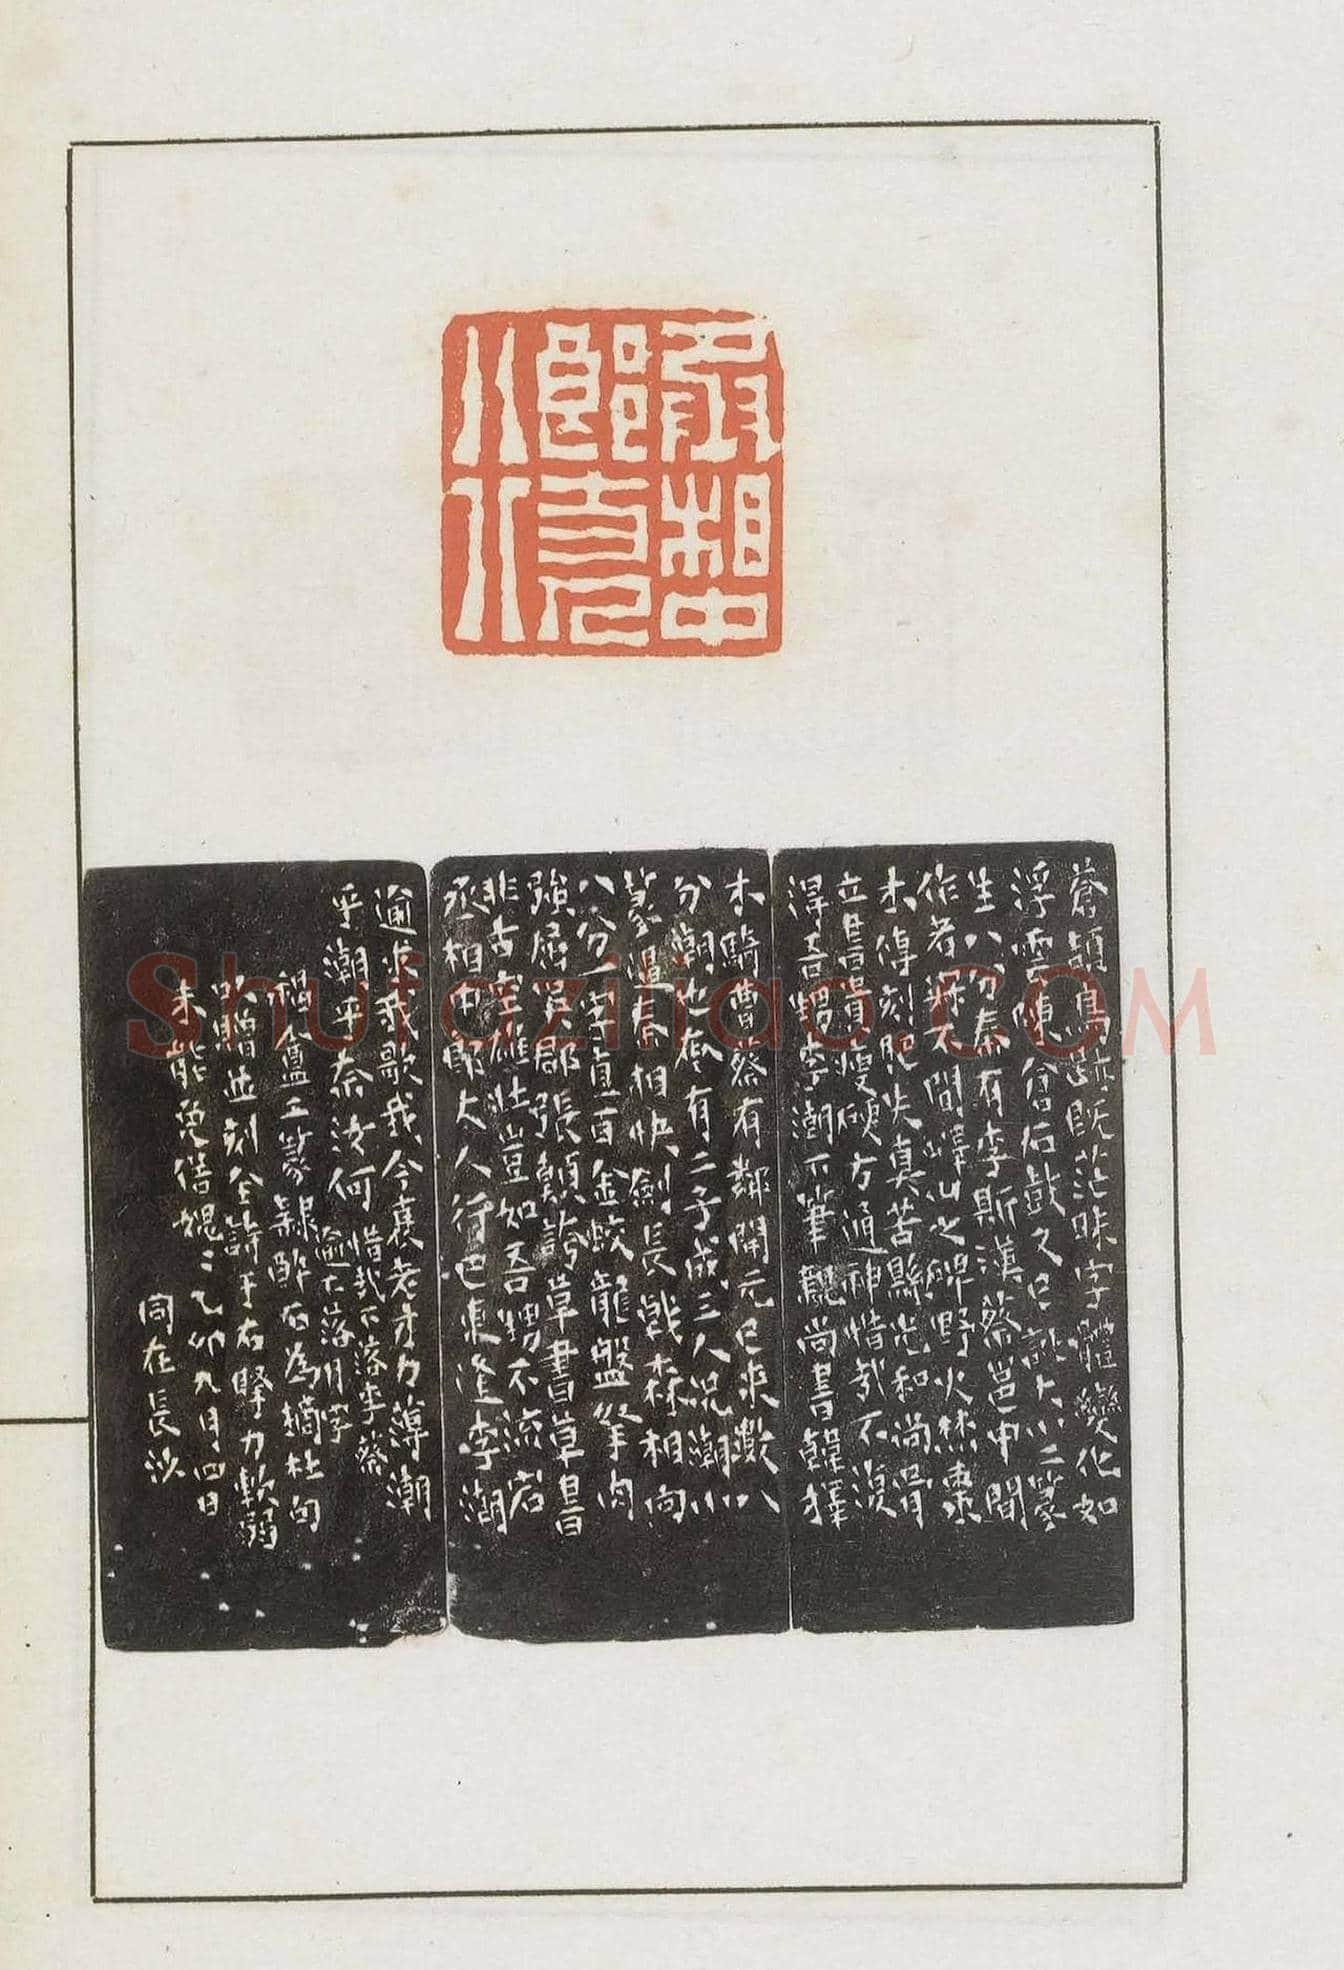 丞相中
郎丈
人行
蒼頡鳥跡既茫昧字體變化如
浮雲陳倉石鼓久已訛大小二篆
生八分秦有李斯漢蔡邕中間
作者寂不聞嶧山之碑野火焚棗
木傳刻肥失真苦縣光和尚骨
立書貴瘦硬方通神惜哉不復
得吾甥李潮下筆親尚書韓擇
木騎曹蔡有鄰開元已來數八
分潮也奄有二子成三人況潮小
篆逼秦相快劍長戟森相向
八分一字直百金蛟龍盤拏肉
強屈吳郡張顛誇草書草書
非古空雄壯豈如吾甥不流宕
丞相中郎丈人行巴東逢李潮
逾求我歌我今衰老才力薄潮
乎潮乎奈汝何
惜哉下落李蔡
逾下落月字
盦工篆隸醉石為摘杜句
以贈並刻全詩于右擊力軟弱
未能免俗媿〻乙卯九月四日
同在長沙
Shufaziliao.COM